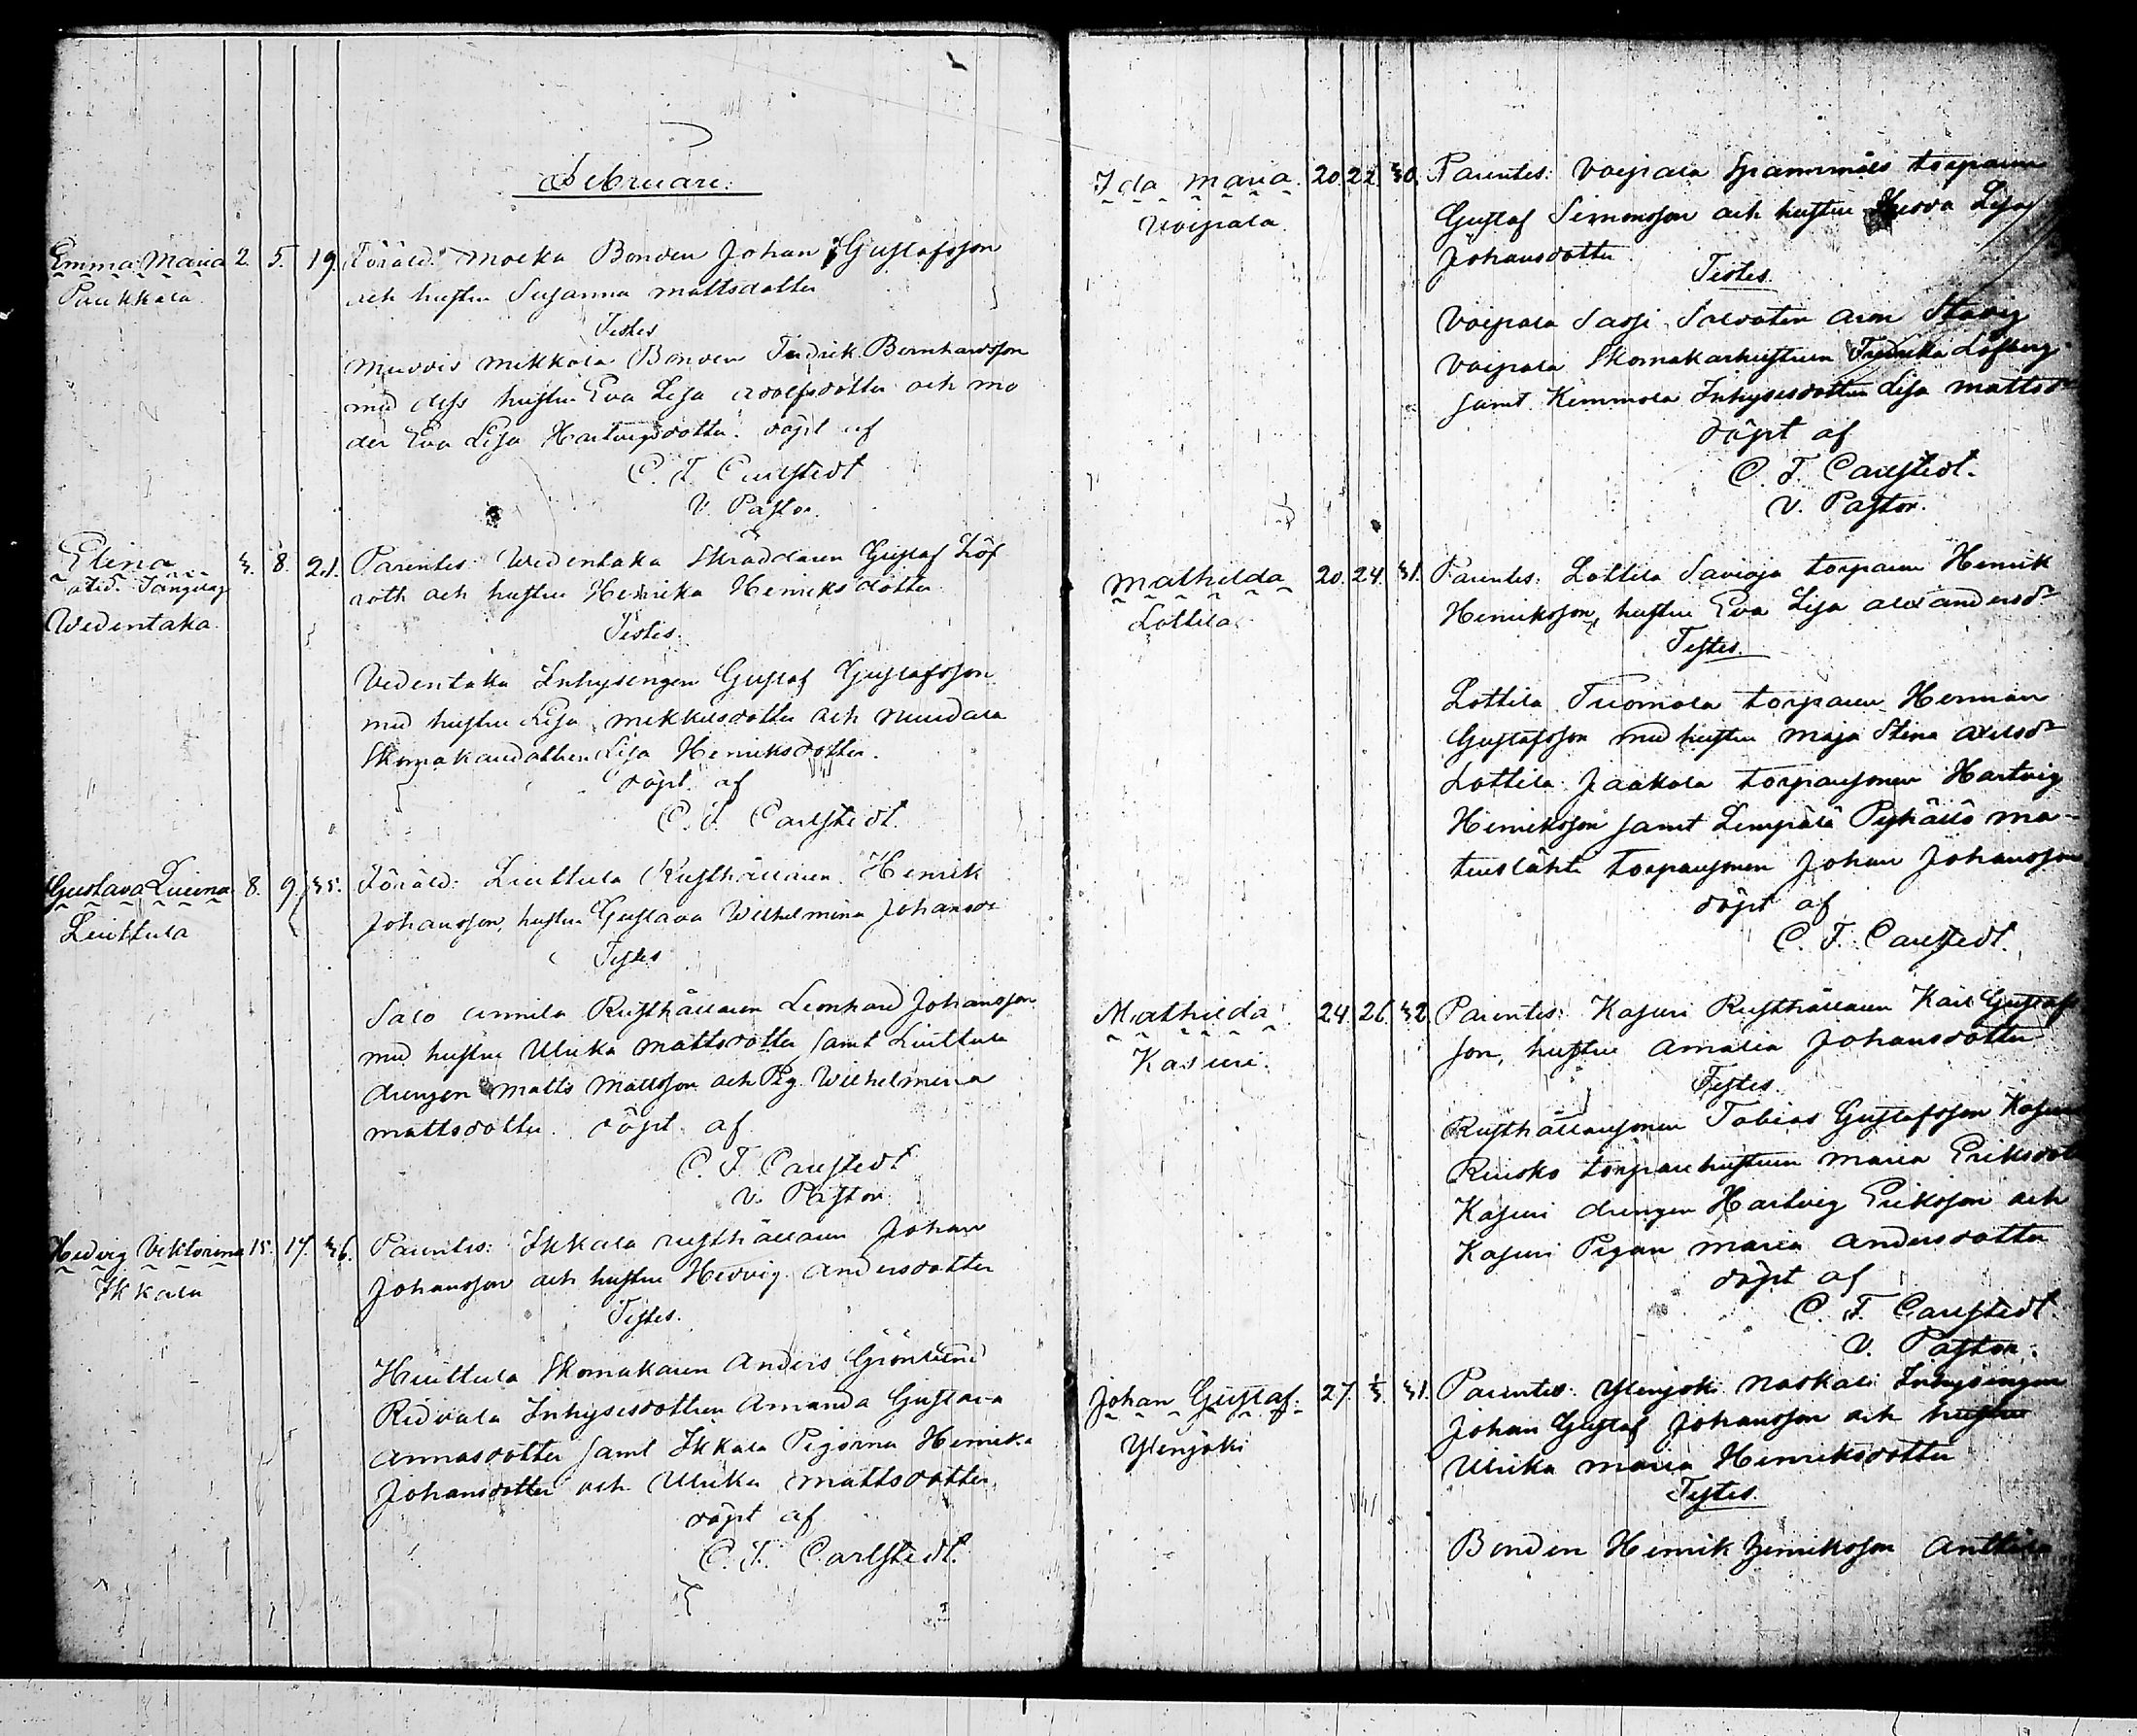 Februari.
Emma Maria 2. 5. 19. Föräld: Moska Bonden Johan Gustafsson
Paukkala. och hustru Susanna Mattsdotter
Testes
Mikkola Bonden Fredrik Bernhardsson
med dess hustru Eva Lisa Adolfsdotter och mo
der Eva Lisa Hartvigsdotter. döpt af
C. F. Carlstedt
V. Pastor.
Elina 3. 8. 21. Parentes: Wedentaka Skräddaren Gustaf Löf
roth och hustru Henrika Henriksdotter
Wedentaka. Testes.
Vedentaka Inhysingen Gustaf Gustafsson
med hustru Lisa Mikkelsdotter och
Lisa Henriksdotter.
döpt af
C. F. Carlstedt.
Gustava Lovina 8. 9. 35. Föräld: Liuttula Rusthållaren Henrik
Liuttula Johansson, hustru Gustava Wilhelmina Johansdr
Testes
Salo Annila Rusthållaren Leonhard Johansson
med hustru Ulrika Mattsdotter samt Liuttula
drengen Matts Mattsson och Pig. Wilhelmina
Mattsdotter. döpt af
C. F. Carlstedt
V. Pastor.
Hedvig Viktorina 15. 17. 36. Parentes: Ikkala rusthållaren Johan
Ikkala Johansson och hustru Hedvig Andersdotter
Testes.
Huittula Skomakaren Anders Grönlund
Ridvala Inhysesdottren Amanda Gustava
Annasdotter samt Ikkala Pigorna Henrika
Johansdotter och Ulrika Mattsdotter.
döpt af
C. F. Carlstedt.
Ida Maria. 20. 22. 30. Parentes: Voipala torparen
Voipala Gustaf Simonsson och hustru Lisa
Johansdotter.
Testes.
Voipala Sassi Soldaten Aron
Voipala Skomakarhustrun Fredrika Löfberg
samt Kimmola Inhysesdottren Lisa Mattsdr
döpt af
C. F. Carlstedt.
V. Pastor.
Mathilda 20. 24. 31. Parentes: Lottila Savioja torparen Henrik
Lottila Henriksson, hustru Eva Lisa Alexandersdr
Testes.
Lottila Tuomola torparen Herman
Gustafsson med hustru Maja Stina Axelsdr
Lottila Jaakola torparsonen Hartvig
Henriksson samt Lempälä Pyhällö Ma-
tuslähti torparsonen Johan Johansson
döpt af
C. F. Carlstedt.
Mathilda 24. 26. 32. Parentes: Kasuri Rusthållaren Karl Gustafs
Kasuri. son, hustru Amalia Johansdotter
Testes.
Rusthållarsonen Tobias Gustafsson Kasuri
Ruisko torparehustrun Maria Eriksdott
Kasuri drengen Hartvig Eriksson och
Kasuri Pigan Maria Andersdotter
döpt af
C. F. Carlstedt.
V. Pastor.
Johan Gustaf. 27. 31. Parentes: Ylenjoki Naskali Inhysingen
Ylenjoki Johan Gustaf Johansson och hustru
Ulrika Maria Henriksdotter
Testes.
Bonden Henrik Henriksson Anttila